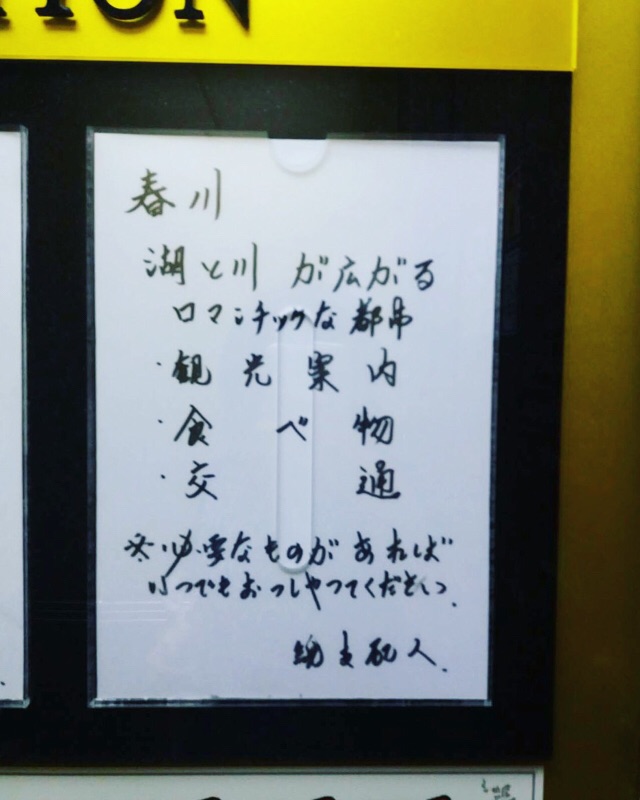 TION
春川
湖と川 が広がる
ロマンチックな都市
・観光案内
・食べ物
・交通
※必要なものがあれば
いつでもおっしゃってください.
総支配人.